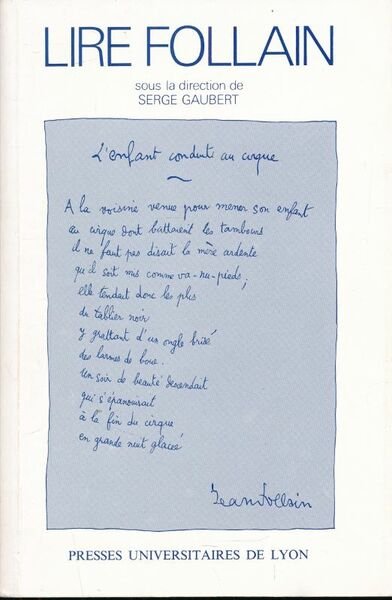 LIRE FOLLAIN
sous la direction de
SERGE GAUBERT
L'enfant conduit au cirque
A la voisine venue pour mener son enfant
au cirque dont battaient les tambours
il ne faut pas disait la mère ardente
qu'il soit mis comme va-nu-pieds ;
elle tendait donc les plis
du tablier noir
y grattant d'un ongle brisé
des larmes de boue.
Un soir de beauté descendait
qui s'épanouirait
à la fin du cirque
en grande nuit glacée
Jean Follain
PRESSES UNIVERSITAIRES DE LYON